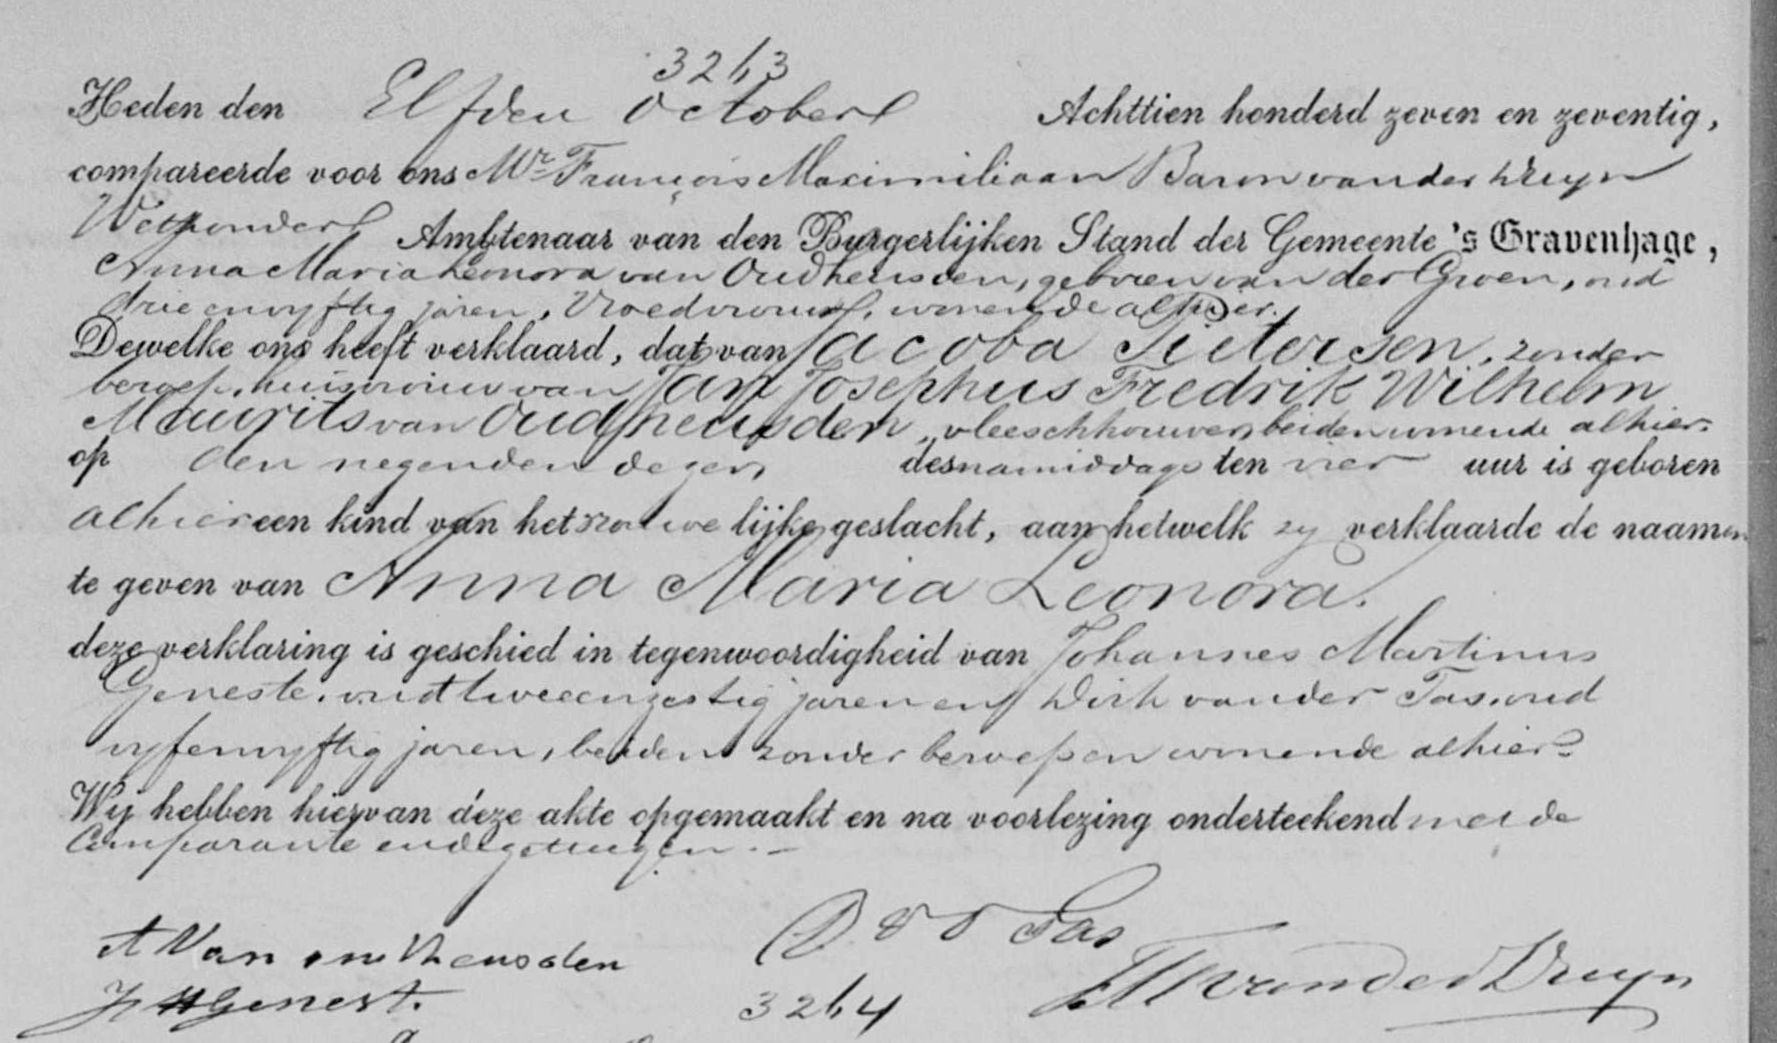 3263
Heden den Elfden October Achttien honderd zeven en zeventig,
compareerde voor ons Mr. François Maximiliaan Baron van der Duyn
Wethouder Ambtenaar van den Burgerlijken Stand der Gemeente 's Gravenhage,
Anna Maria Leonora van Oudheusden, geboren van der Groen, oud
drie en vyftig jaren, Vroedvrouw, wonende alhier.
Dewelke ons heeft verklaard, dat van Jacoba Pietersen, zonder
beroep, huisvrouw van Jan Josephus Fredrik Wilhelm
Maurits van Oudheusden, vleeschhouwer, beiden wonende alhier
op den negenden dezer, des namiddags ten vier uur is geboren
alhier een kind van het vrouwelijke geslacht, aan hetwelk zy verklaarde de naamen
te geven van Anna Maria Leonora.
deze verklaring is geschied in tegenwoordigheid van Johannes Martinus
Geneste, oud twee en zestig jaren en Dirk van der Tas, oud
vyf en vyftig jaren, beiden zonder beroep en wonende alhier.
Wij hebben hiervan deze akte opgemaakt en na voorlezing onderteekend met de
Comparante en de getuigen.
A Van oudheusden D v d Tas
J M Genest. FM van der Duyn
3264